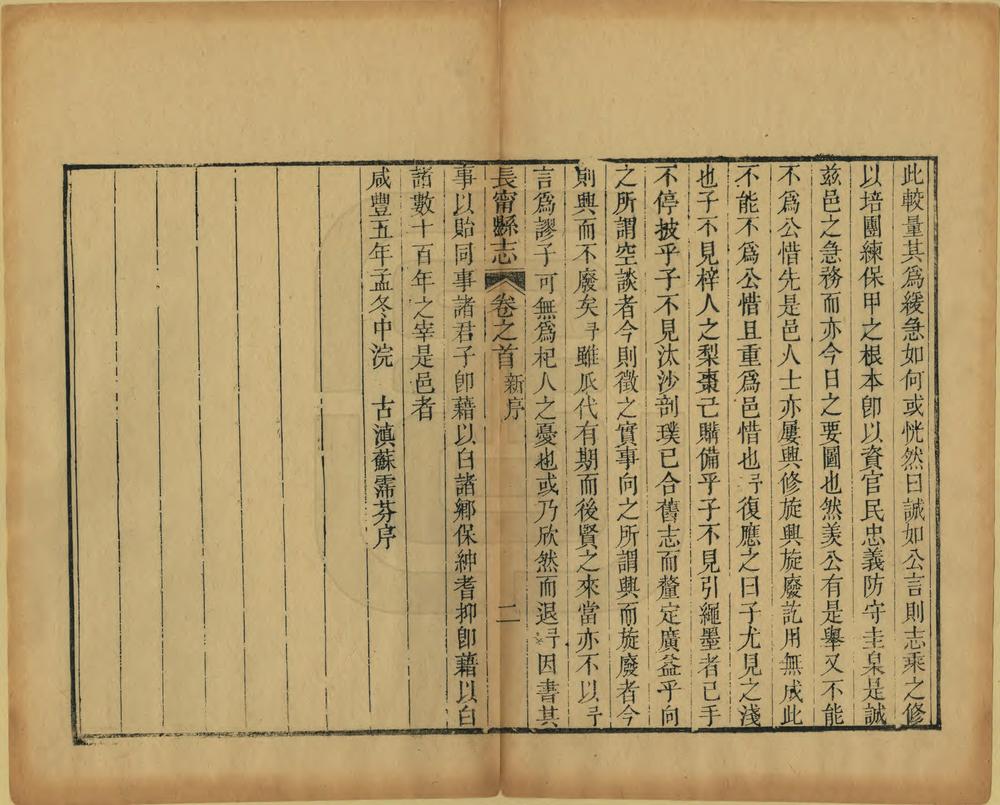 此較量其爲緩急如何或恍然曰誠如公言則志乘之修
以培團練保甲之根本卽以資官民忠義防守圭臬是誠
茲邑之急務而亦今日之要圖也然羙公有是舉又不能
不爲公惜先是邑人士亦屢興修旋興旋廢訖用無成此
不能不爲公惜且重爲邑惜也予復應之曰子尤見之淺
也子不見梓人之梨棗已購備乎子不見引繩墨者已手
不停披乎子不見汰沙剖璞已合舊志而釐定廣益乎向
之所謂空談者今則徵之實事向之所謂興而旋廢者今
則興而不廢矣予雖瓜代有期而後賢之來當亦不以予
言爲謬子可無爲杞人之憂也或乃欣然而退予因書其
長甯縣志 卷之首 新序 二
事以貽同事諸君子卽藉以白諸鄉保紳耆抑卽藉以白
諸數十百年之宰是邑者
咸豐五年孟冬中浣 古滇蘇霈芬序